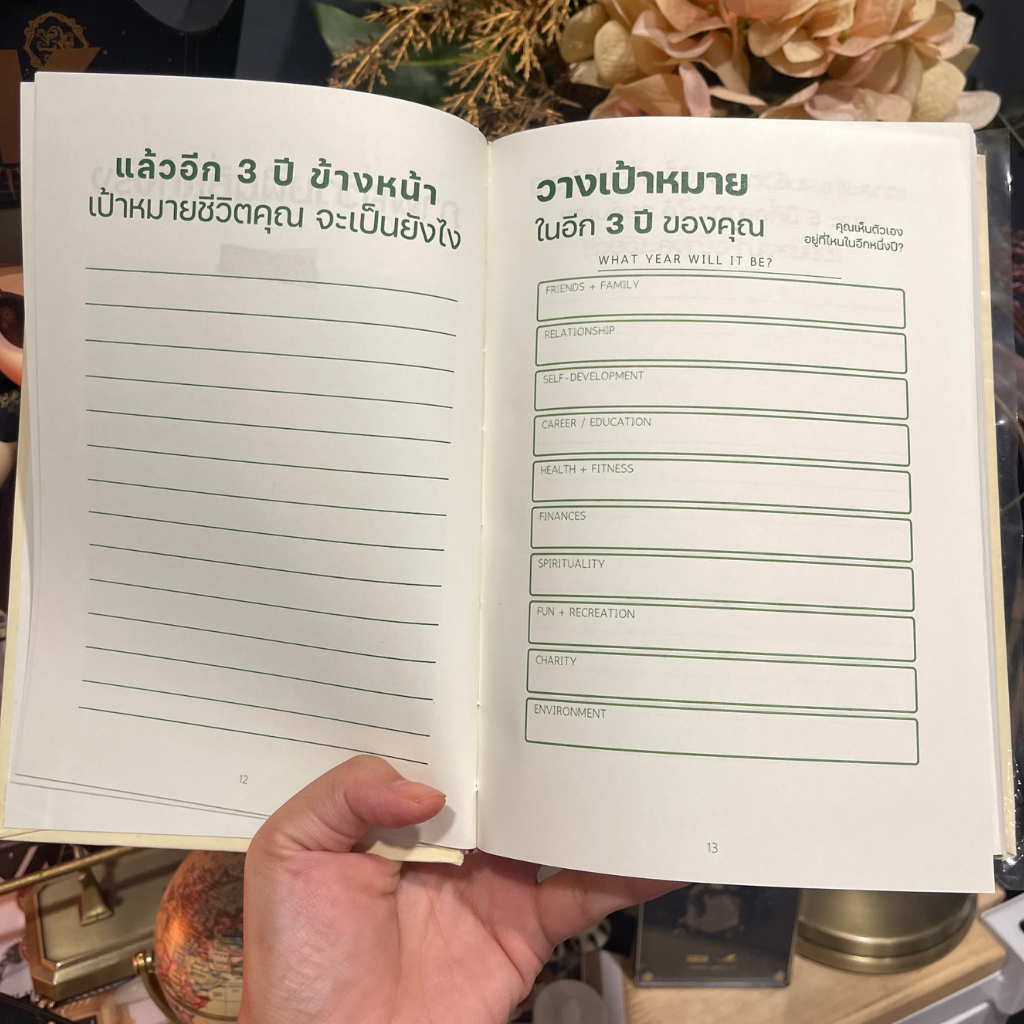 แล้วอีก 3 ปี ข้างหน้า
เป้าหมายชีวิตคุณ จะเป็นยังไง
12
วางเป้าหมาย
ในอีก 3 ปี ของคุณ
คุณเห็นตัวเอง
อยู่ที่ไหนในอีกหนึ่งปี?
WHAT YEAR WILL IT BE?
FRIENDS + FAMILY
RELATIONSHIP
SELF-DEVELOPMENT
CAREER / EDUCATION
HEALTH + FITNESS
FINANCES
SPIRITUALITY
FUN + RECREATION
CHARITY
ENVIRONMENT
13